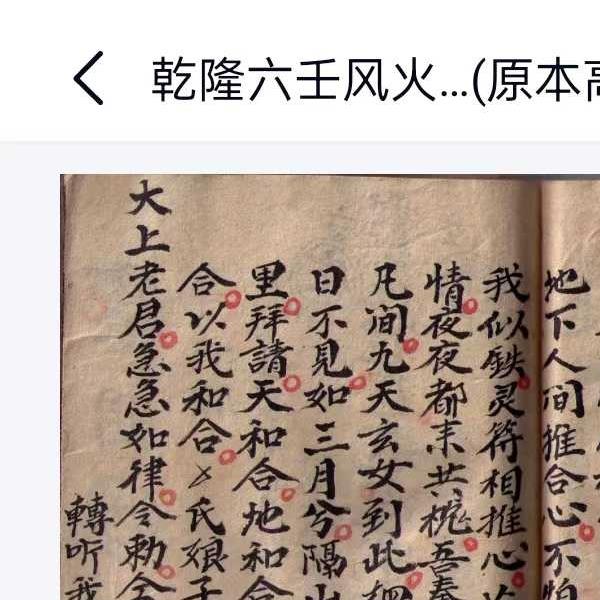 乾隆六壬风火...(原本高
地下人间推合心不怕
我似鉄灵符相推心
情夜夜都来共枕吾奉
凡间九天玄女到此
日不见如三月兮隔山
里拜請天和合地和合
合以我和合乄氏娘子
大上老君急急如律令勅令
轉听我